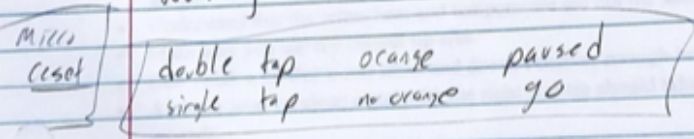 Micro
reset
double tap orange paused
single tap no orange go